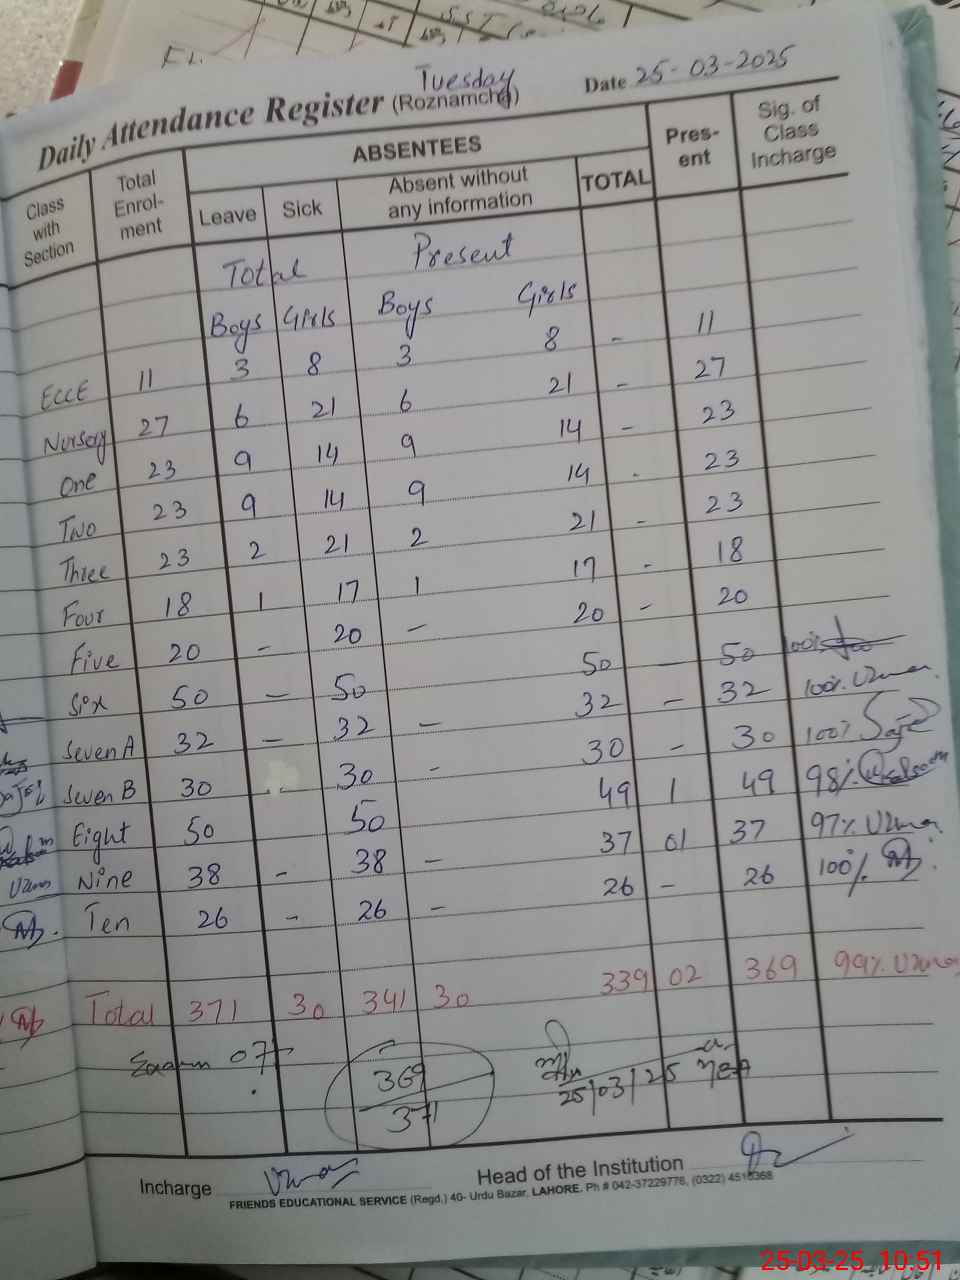 Tuesday
Daily Attendance Register (Roznamcha) Date 25-03-2025
Class with Section Total Enrol-ment ABSENTEES Pres-ent Sig. of Class Incharge
Leave Sick Absent without any information TOTAL
Total Present
Boys Girls Boys Girls
ECCE 11 3 8 3 8 - 11
Nursery 27 6 21 6 21 - 27
One 23 9 14 9 14 - 23
Two 23 9 14 9 14 - 23
Three 23 2 21 2 21 - 23
Four 18 1 17 1 17 - 18
Five 20 - 20 - 20 - 20
Six 50 - 50 50 - 50
Seven A 32 - 32 - 32 - 32 100% Uzma
Seven B 30 30 - 30 - 30 100%
Eight 50 50 49 1 49 98%
Nine 38 - 38 - 37 01 37 97% Uzma
Ten 26 - 26 - 26 - 26 100%
Total 371 30 341 30 339 02 369 99% Uzma
07
369
371
25/03/25
Incharge Uzma Head of the Institution
FRIENDS EDUCATIONAL SERVICE (Regd.) 40- Urdu Bazar, LAHORE. Ph # 042-37229776, (0322)
25-03-25 10:51